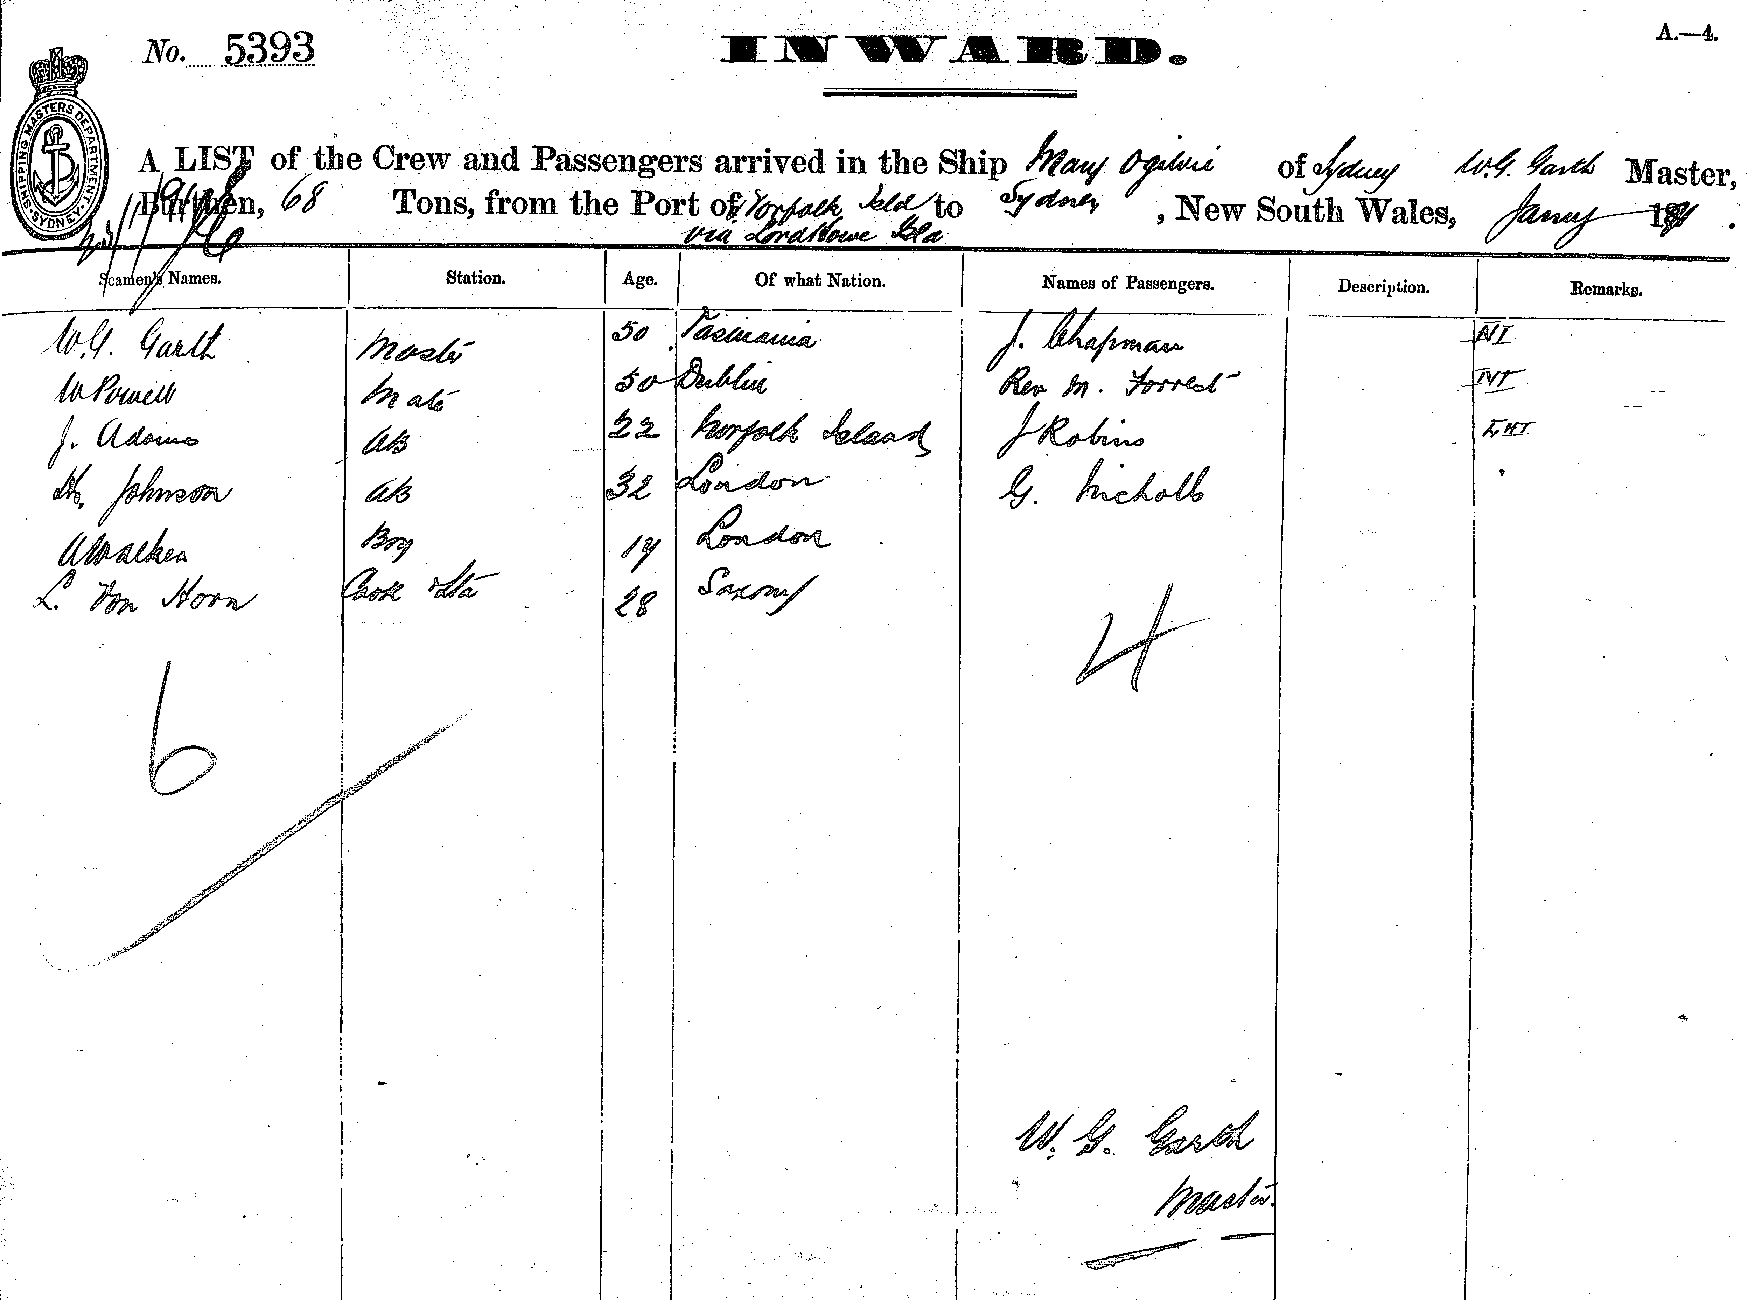 No. 5393
INWARD.
A.—4.
SHIPPING MASTERS DEPARTMENT · SYDNEY
A LIST of the Crew and Passengers arrived in the Ship Mary Ogilvie of Sydney W.G. Garth Master,
Burthen, 68 Tons, from the Port of Norfolk Isld to Sydney, New South Wales, Jany 18
via Lord Howe Isla
Seamen's Names. Station. Age. Of what Nation. Names of Passengers. Description. Remarks.
W.G. Garth Master 50 Tasmania J. Chapman NI
W Powell Mate 50 Dublin Rev M. Forrest NI
J. Adams AB 22 Norfolk Island J Robins LHI
Johnson AB 32 London G. Nicholls
A Walker Boy 17 London
L. Von Hoon Cook & Sta 28 Saxony
4
6
W. G. Garth
Master.